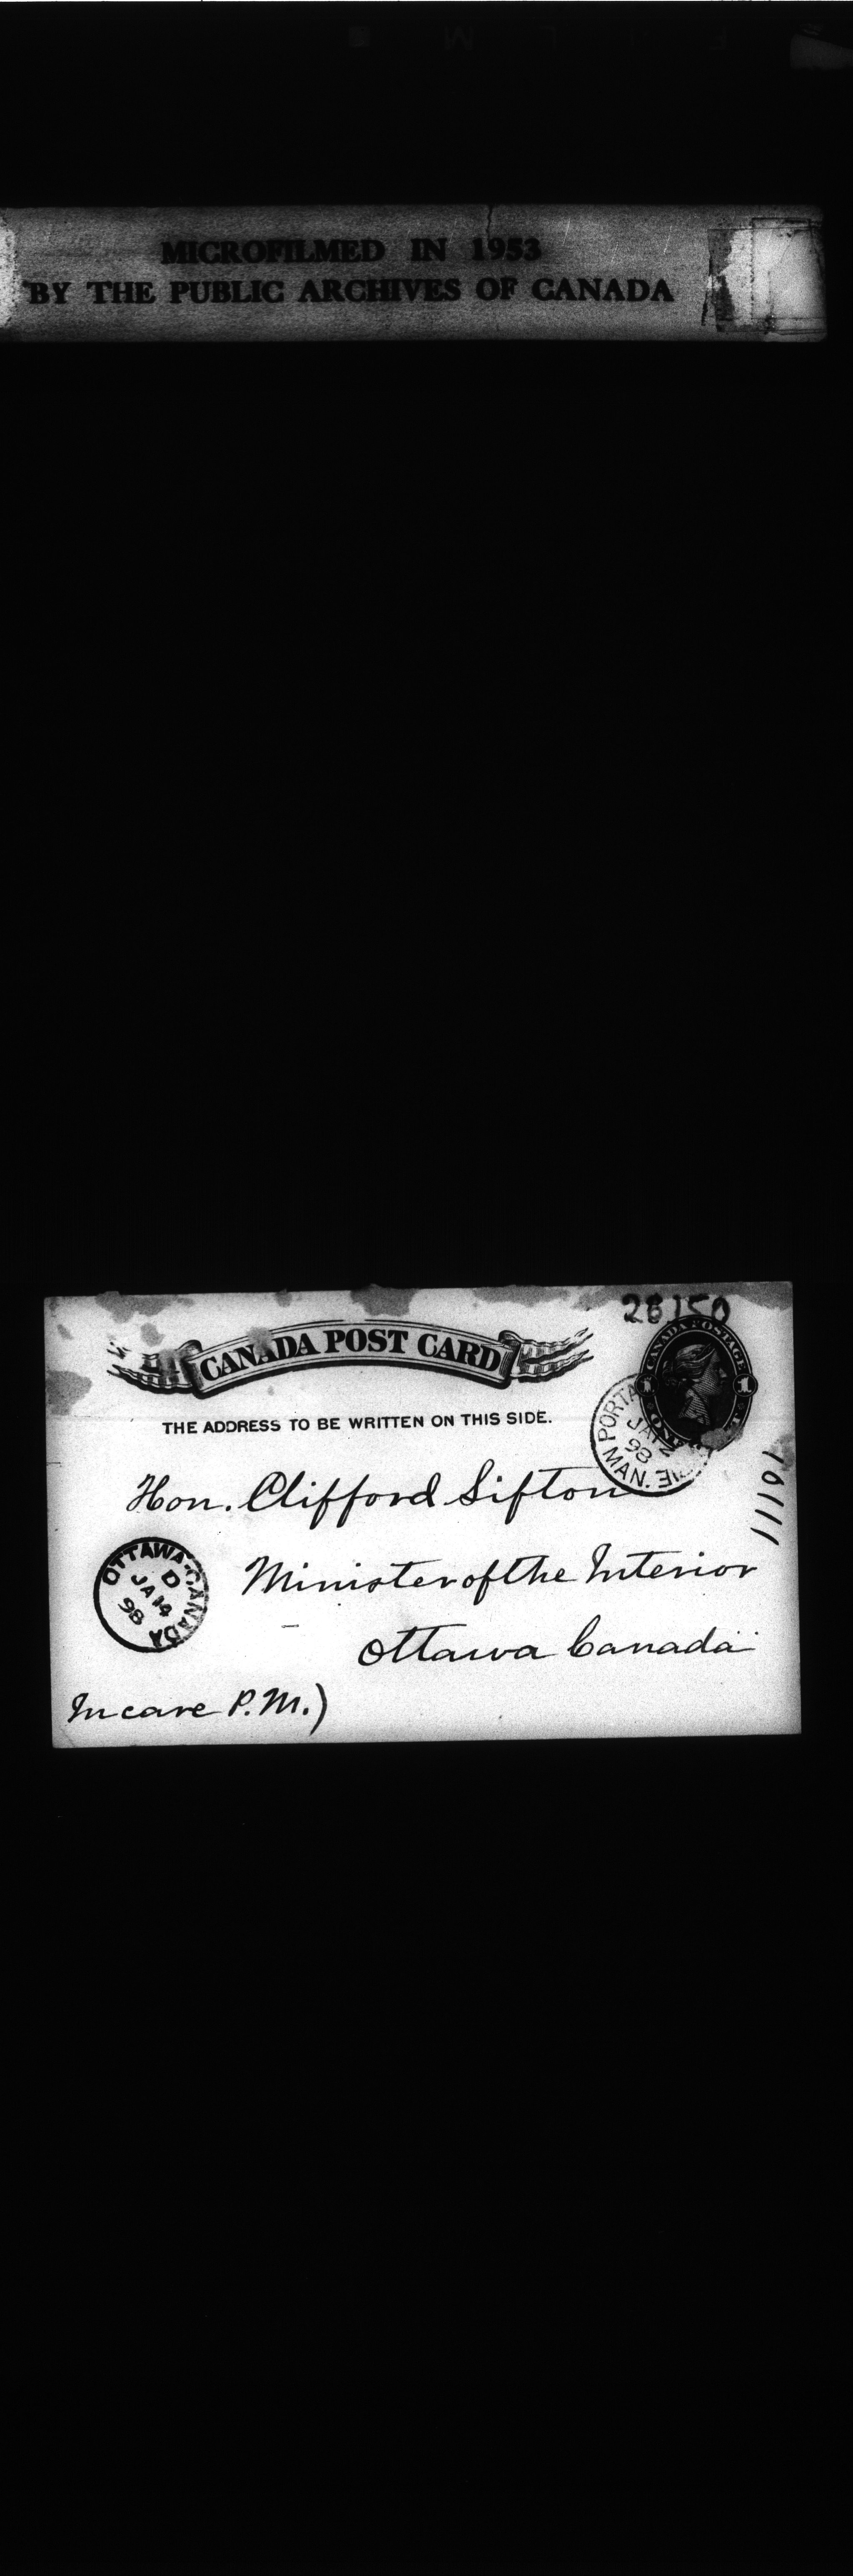 MICROFILMED IN 1953
BY THE PUBLIC ARCHIVES OF CANADA
28150
CANADA POST CARD
CANADA POSTAGE
1 1
THE ADDRESS TO BE WRITTEN ON THIS SIDE.
PORTA
JA 12
98
MAN.
Hon. Clifford Sifton
10111
OTTAWA·CANADA
D
JA 14
98
Minister of the Interior
Ottawa Canada
In care P.M.)